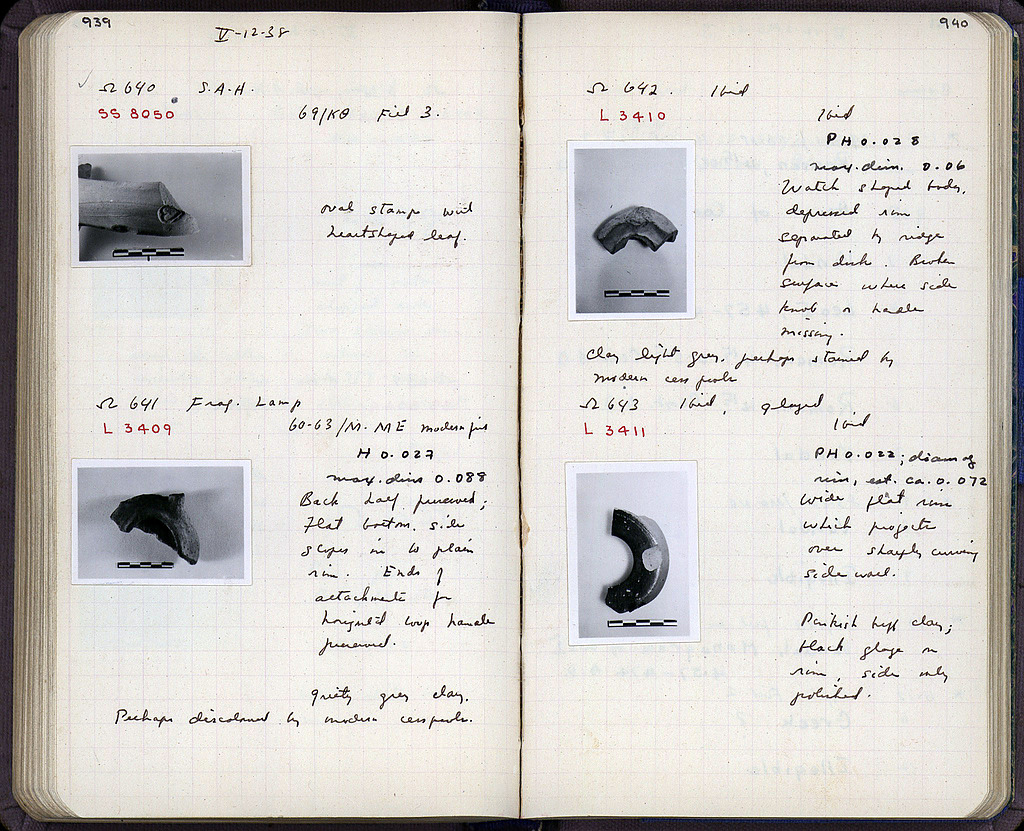 939
V-12-38
Ω 640 S.A.H.
SS 8050
69/ΚΘ Fill 3.
oval stamp with
heartshaped leaf.
Ω 641 Frag. Lamp
L 3409
60-63/Μ-ΜΕ modern pit
H 0.027
max. dim 0.088
Back half preserved;
flat bottom. side
slopes in to plain
rim. Ends of
attachments for
horizontal loop handle
preserved.
gritty grey clay.
Perhaps discoloured by modern cesspools.
940
Ω 642. Ibid
L 3410
Ibid
PH 0.028
max. dim. 0.06
Watch shaped body,
depressed rim
separated by ridge
from disk. Broken
surface where side
knob or handle
missing.
Clay light grey, perhaps stained by
modern cesspools
Ω 643 Ibid, glazed
L 3411
Ibid
PH 0.022; diam of
rim, est. ca. 0.072
Wide flat rim
which projects
over sharply curving
side wall.
Pinkish buff clay;
black glaze on
rim, side only
polished.